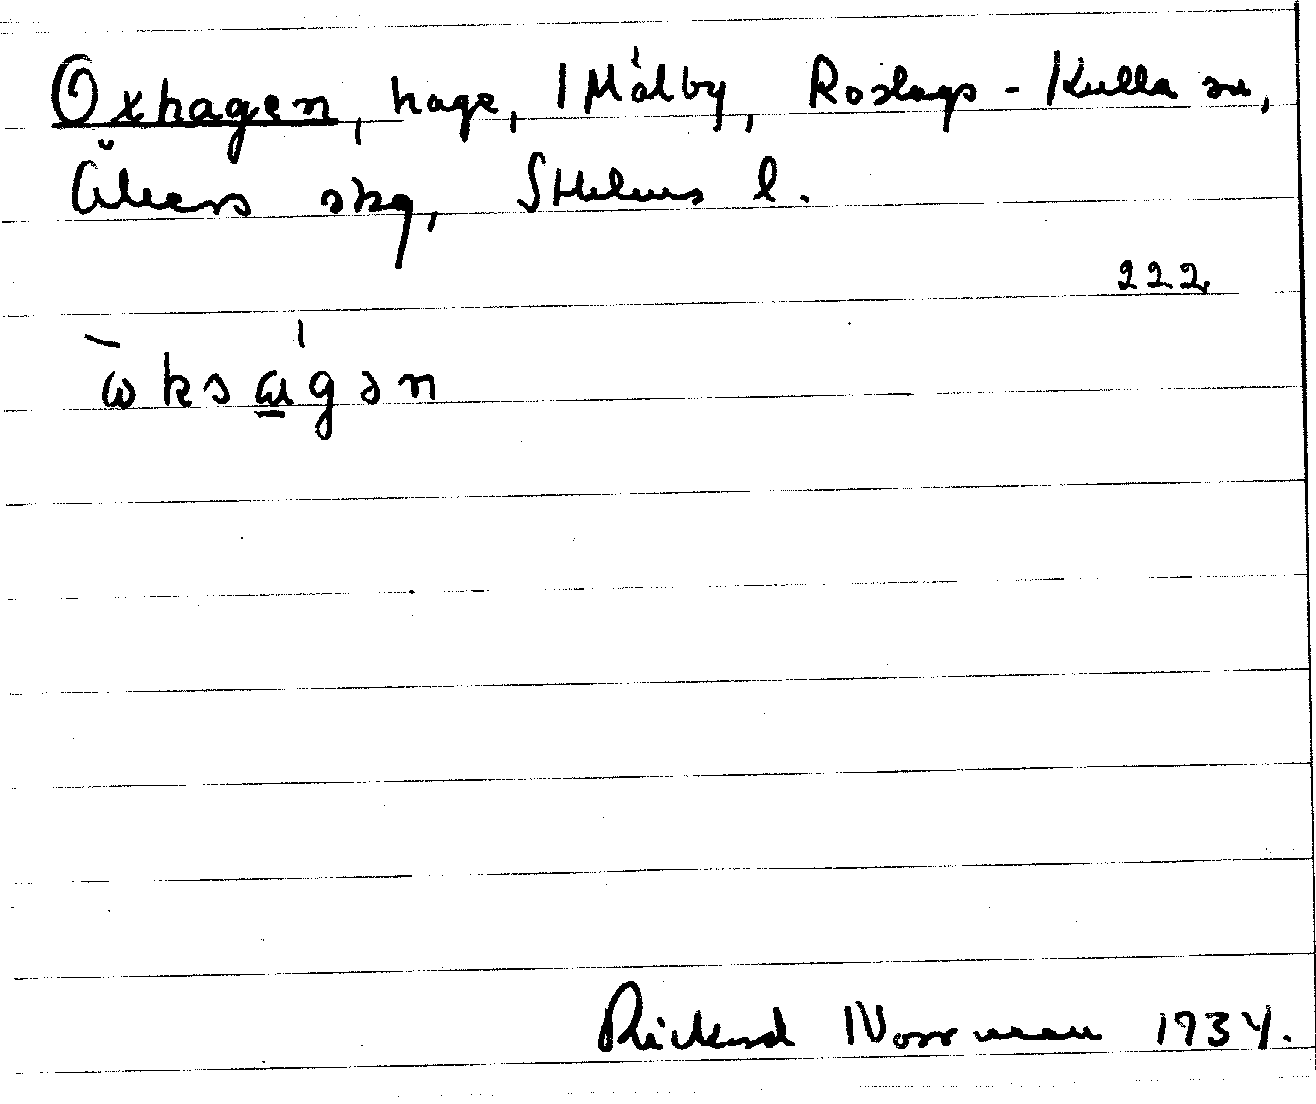 Oxhagen, hage, 1 Målby, Roslags-Kulla sn,
Åkers skg, Sthlms l.
222
ὼksɑ̱́gən
Rickard Norrman 1934.